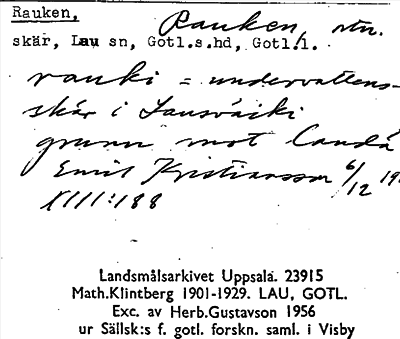 Rauken,
Rauken, stn.
skär, Lau sn, Gotl.s.hd, Gotl.l.
rauki = undervattens-
skär i Lausvaiki
grunn mot Landä
Emil Kristiansson 6/12 19
XIII:188
Landsmålsarkivet Uppsala. 23915
Math.Klintberg 1901-1929. LAU, GOTL.
Exc. av Herb.Gustavson 1956
ur Sällsk:s f. gotl. forskn. saml. i Visby